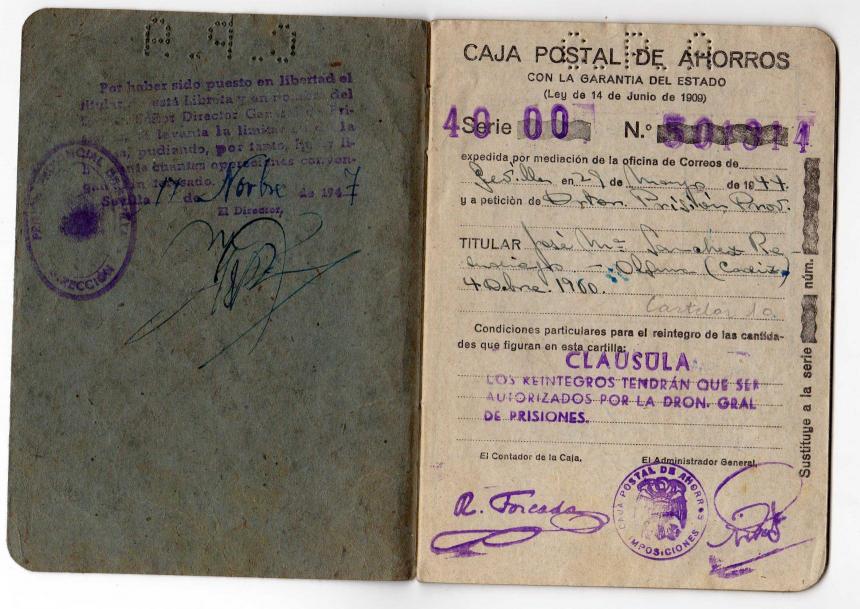 C.P.A.
Por haber sido puesto en libertad el
titular, esta Libreta y en nombre del
Señor Director General de Pri-
se levanta la limitación de la
pudiendo, por tanto,
cuantas operaciones conven-
gan al interesado.
Sevilla 17 de Novbre de 1947
El Director,
DIRECCIÓN
C.P.A.
CAJA POSTAL DE AHORROS
CON LA GARANTIA DEL ESTADO
(Ley de 14 de Junio de 1909)
40 Serie 00 N.º
expedida por mediación de la oficina de Correos de
Sevilla en 29 de Mayo de 1944
y a petición de Prisión Prov.
TITULAR José Mª Sánchez Re-
Olvera (Cadiz)
4 Dbre 1900.
Condiciones particulares para el reintegro de las cantida-
des que figuran en esta cartilla:
CLAUSULA
LOS REINTEGROS TENDRÁN QUE SER
AUTORIZADOS POR LA DRON. GRAL
DE PRISIONES.
El Contador de la Caja, El Administrador General,
R. Forcada
CAJA POSTAL DE AHORROS
IMPOSICIONES
Sustituye a la serie núm.